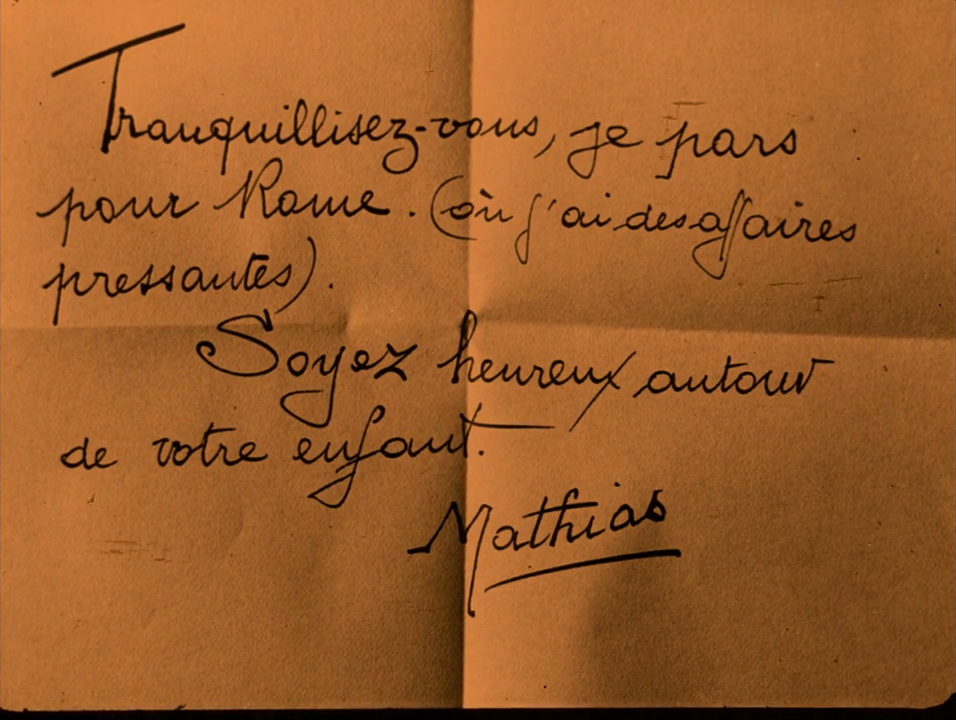 Tranquillisez-vous, je pars
pour Rome. (où j'ai des affaires
pressantes).
Soyez heureux autour
de votre enfant.
Mathias